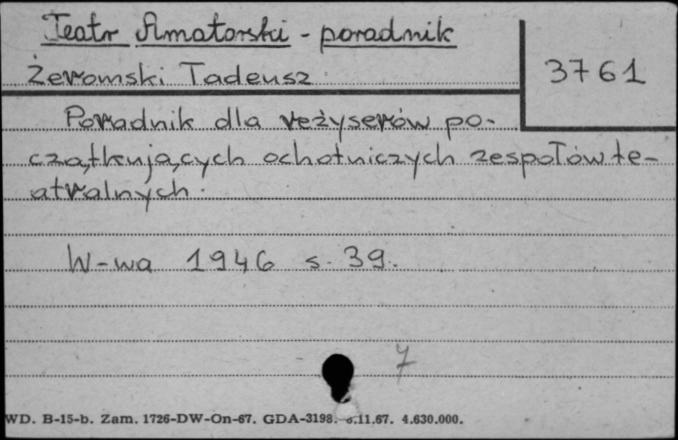 Teatr Amatorski - poradnik
Żeromski Tadeusz
3761
Poradnik dla reżyserów po-
czątkujących ochotniczych zespołów te-
atralnych.
W-wa 1946 s. 39.
7
WD. B-15-b. Zam. 1726-DW-On-67. GDA-3198. 6.11.67. 4.630.000.